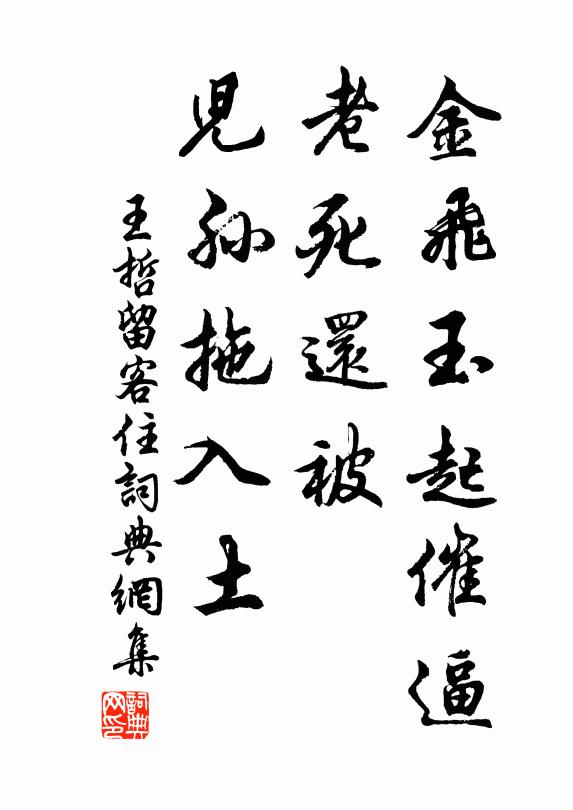 金飛玉起催逼
老死還被
兒孫拖入土
王哲留客住詞典網集
詞典网印